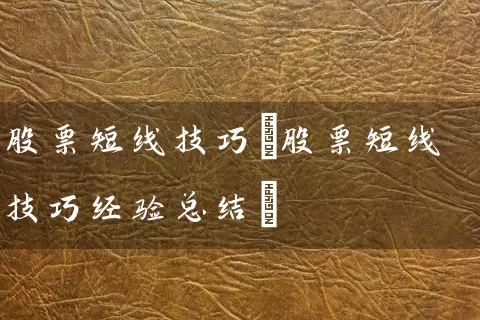 股票短线技巧 股票短线
技巧经验总结